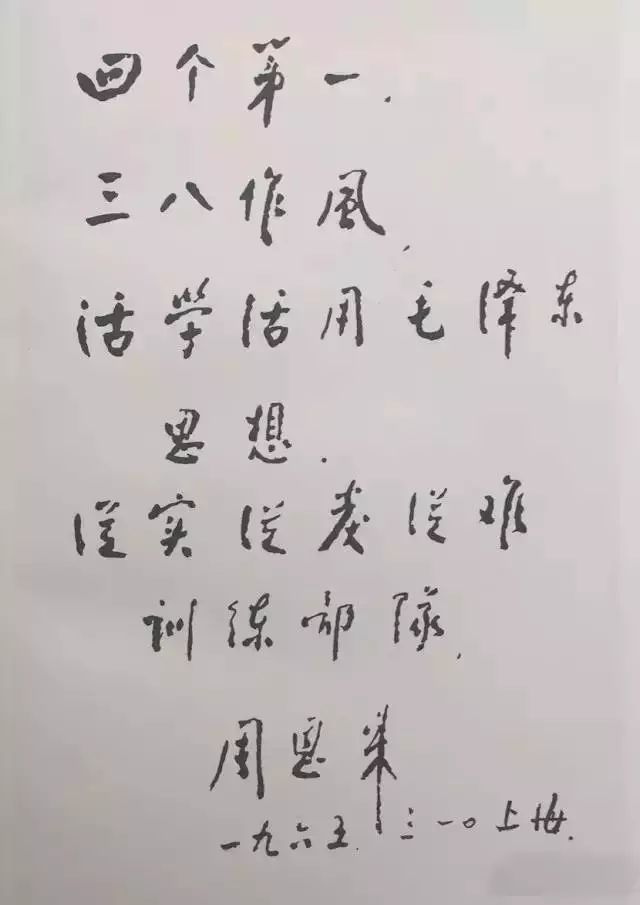 四个第一.
三八作風,
活学活用毛泽东
思想.
從实從严從难
训练部隊.
周恩来
一九六五.三一〇上海.